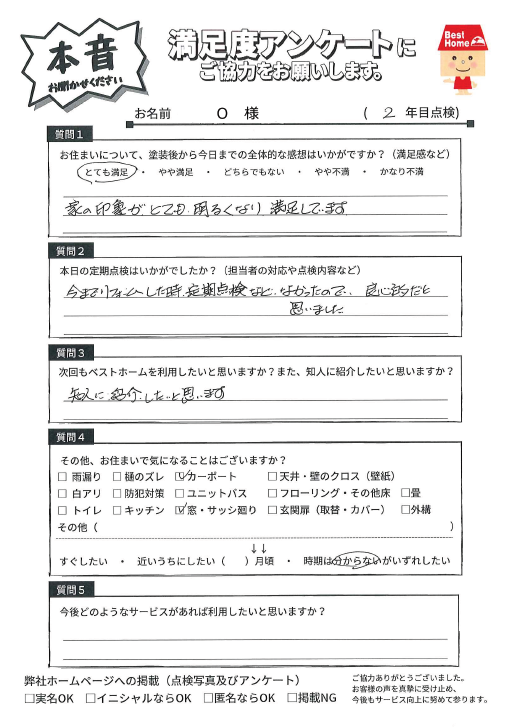 本音
お聞かせください
満足度アンケートに
ご協力をお願いします。
Best Home
お名前 O 様 ( 2 年目点検)
質問1
お住まいについて、塗装後から今日までの全体的な感想はいかがですか？（満足感など）
とても満足 ・ やや満足 ・ どちらでもない ・ やや不満 ・ かなり不満
家の印象がとても明るくなり満足しています
質問2
本日の定期点検はいかがでしたか？（担当者の対応や点検内容など）
今までリフォームした時、定期点検など、なかったので、良心的だと
思いました
質問3
次回もベストホームを利用したいと思いますか？また、知人に紹介したいと思いますか？
知人に紹介したいと思います
質問4
その他、お住まいで気になることはございますか？
□ 雨漏り □ 樋のズレ ☑ カーポート □ 天井・壁のクロス（壁紙）
□ 白アリ □ 防犯対策 □ ユニットバス □ フローリング・その他床 □畳
□ トイレ □ キッチン ☑ 窓・サッシ廻り □ 玄関扉（取替・カバー） □外構
その他（ ）
↓↓
すぐしたい ・ 近いうちにしたい（ ）月頃 ・ 時期は分からないがいずれしたい
質問5
今後どのようなサービスがあれば利用したいと思いますか？
弊社ホームページへの掲載（点検写真及びアンケート）
□実名OK □イニシャルならOK □匿名ならOK □掲載NG
ご協力ありがとうございました。
お客様の声を真摯に受け止め、
今後もサービス向上に努めて参ります。